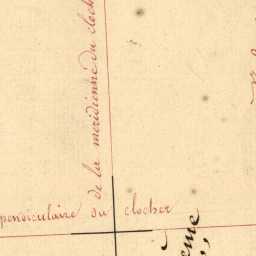 de la méridienne du cloch
pendiculaire du clocher